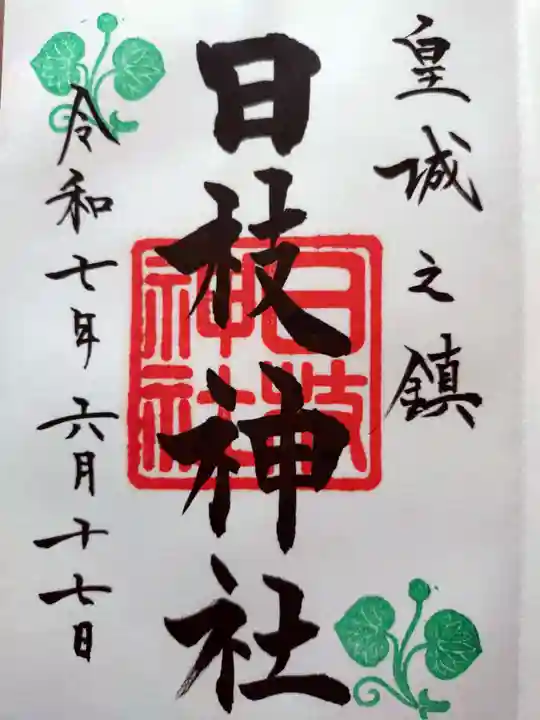 皇城之鎮
日枝神社
日枝
神社
令和七年六月十七日